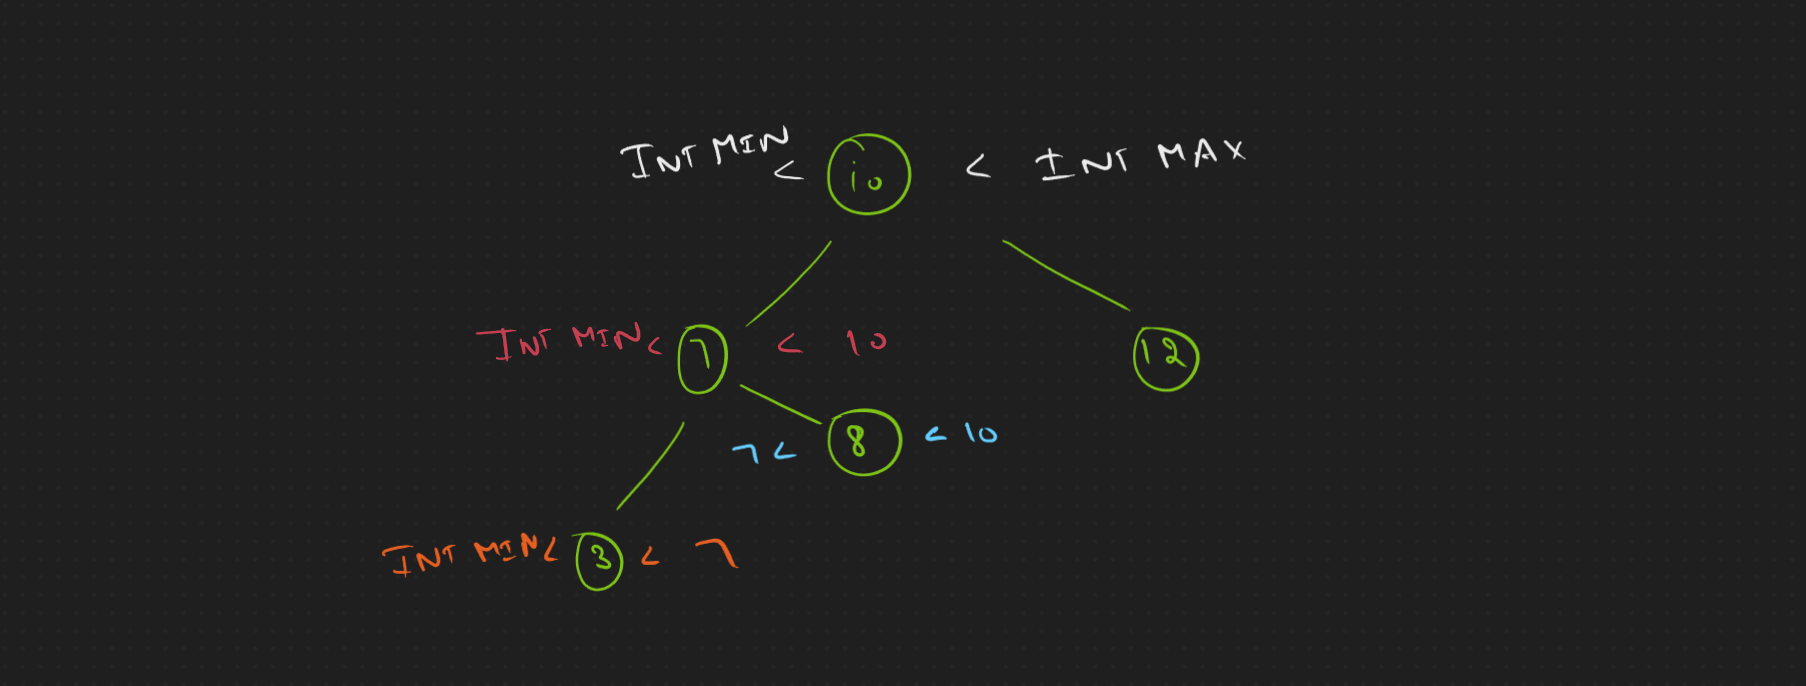 INT MIN < 10 < INT MAX
INT MIN < 7 < 10
12
7 < 8 < 10
INT MIN < 3 < 7